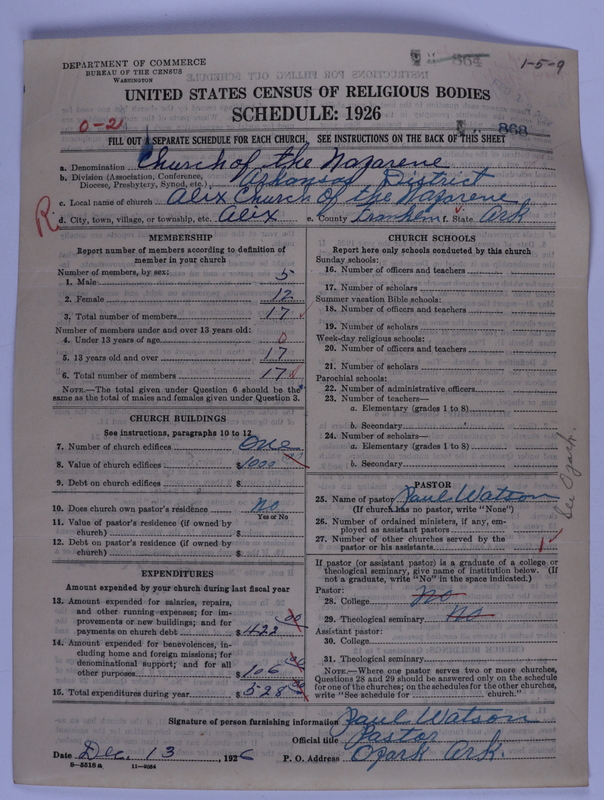 DEPARTMENT OF COMMERCE
BUREAU OF THE CENSUS
WASHINGTON
864
1-5-9
UNITED STATES CENSUS OF RELIGIOUS BODIES
SCHEDULE: 1926
0-2
868
FILL OUT A SEPARATE SCHEDULE FOR EACH CHURCH. SEE INSTRUCTIONS ON THE BACK OF THIS SHEET
a. Denomination Church of the Nazarene
b. Division (Association, Conference, Diocese, Presbytery, Synod, etc.) Arkansas District
c. Local name of church Alix Church of the Nazarene
R.
d. City, town, village, or township, etc. Alix e. County Franklin f. State Ark
MEMBERSHIP
Report number of members according to definition of
member in your church
Number of members, by sex:
1. Male 5
2. Female 12
3. Total number of members 17
Number of members under and over 13 years old:
4. Under 13 years of age 0
5. 13 years old and over 17
6. Total number of members 17
NOTE.—The total given under Question 6 should be the
same as the total of males and females given under Question 3.
CHURCH BUILDINGS
See instructions, paragraphs 10 to 12
7. Number of church edifices One
8. Value of church edifices $1000 00
9. Debt on church edifices $
10. Does church own pastor's residence No
Yes or No
11. Value of pastor's residence (if owned by
church) $
12. Debt on pastor's residence (if owned by
church) $
EXPENDITURES
Amount expended by your church during last fiscal year
13. Amount expended for salaries, repairs,
and other running expenses; for im-
provements or new buildings; and for
payments on church debt $422 00
14. Amount expended for benevolences, in-
cluding home and foreign missions; for
denominational support; and for all
other purposes $106 00
15. Total expenditures during year $528 00
CHURCH SCHOOLS
Report here only schools conducted by this church
Sunday schools:
16. Number of officers and teachers
17. Number of scholars
Summer vacation Bible schools:
18. Number of officers and teachers
19. Number of scholars
Week-day religious schools:
20. Number of officers and teachers
21. Number of scholars
Parochial schools:
22. Number of administrative officers
23. Number of teachers—
a. Elementary (grades 1 to 8)
b. Secondary
24. Number of scholars—
a. Elementary (grades 1 to 8)
b. Secondary
See Ozark.
PASTOR
25. Name of pastor Paul Watson
(If church has no pastor, write "None")
26. Number of ordained ministers, if any, em-
ployed as assistant pastors
27. Number of other churches served by the
pastor or his assistants 1
If pastor (or assistant pastor) is a graduate of a college or
theological seminary, give name of institution below. (If
not a graduate, write "No" in the space indicated.)
Pastor:
28. College No
29. Theological seminary No
Assistant pastor:
30. College
31. Theological seminary
NOTE.—Where one pastor serves two or more churches,
Questions 28 and 29 should be answered only on the schedule
for one of the churches; on the schedules for the other churches,
write "See schedule for church."
Signature of person furnishing information Paul Watson
Official title Pastor
Date Dec. 13, 1926 P. O. Address Ozark Ark.
8-5516 a 11-9064